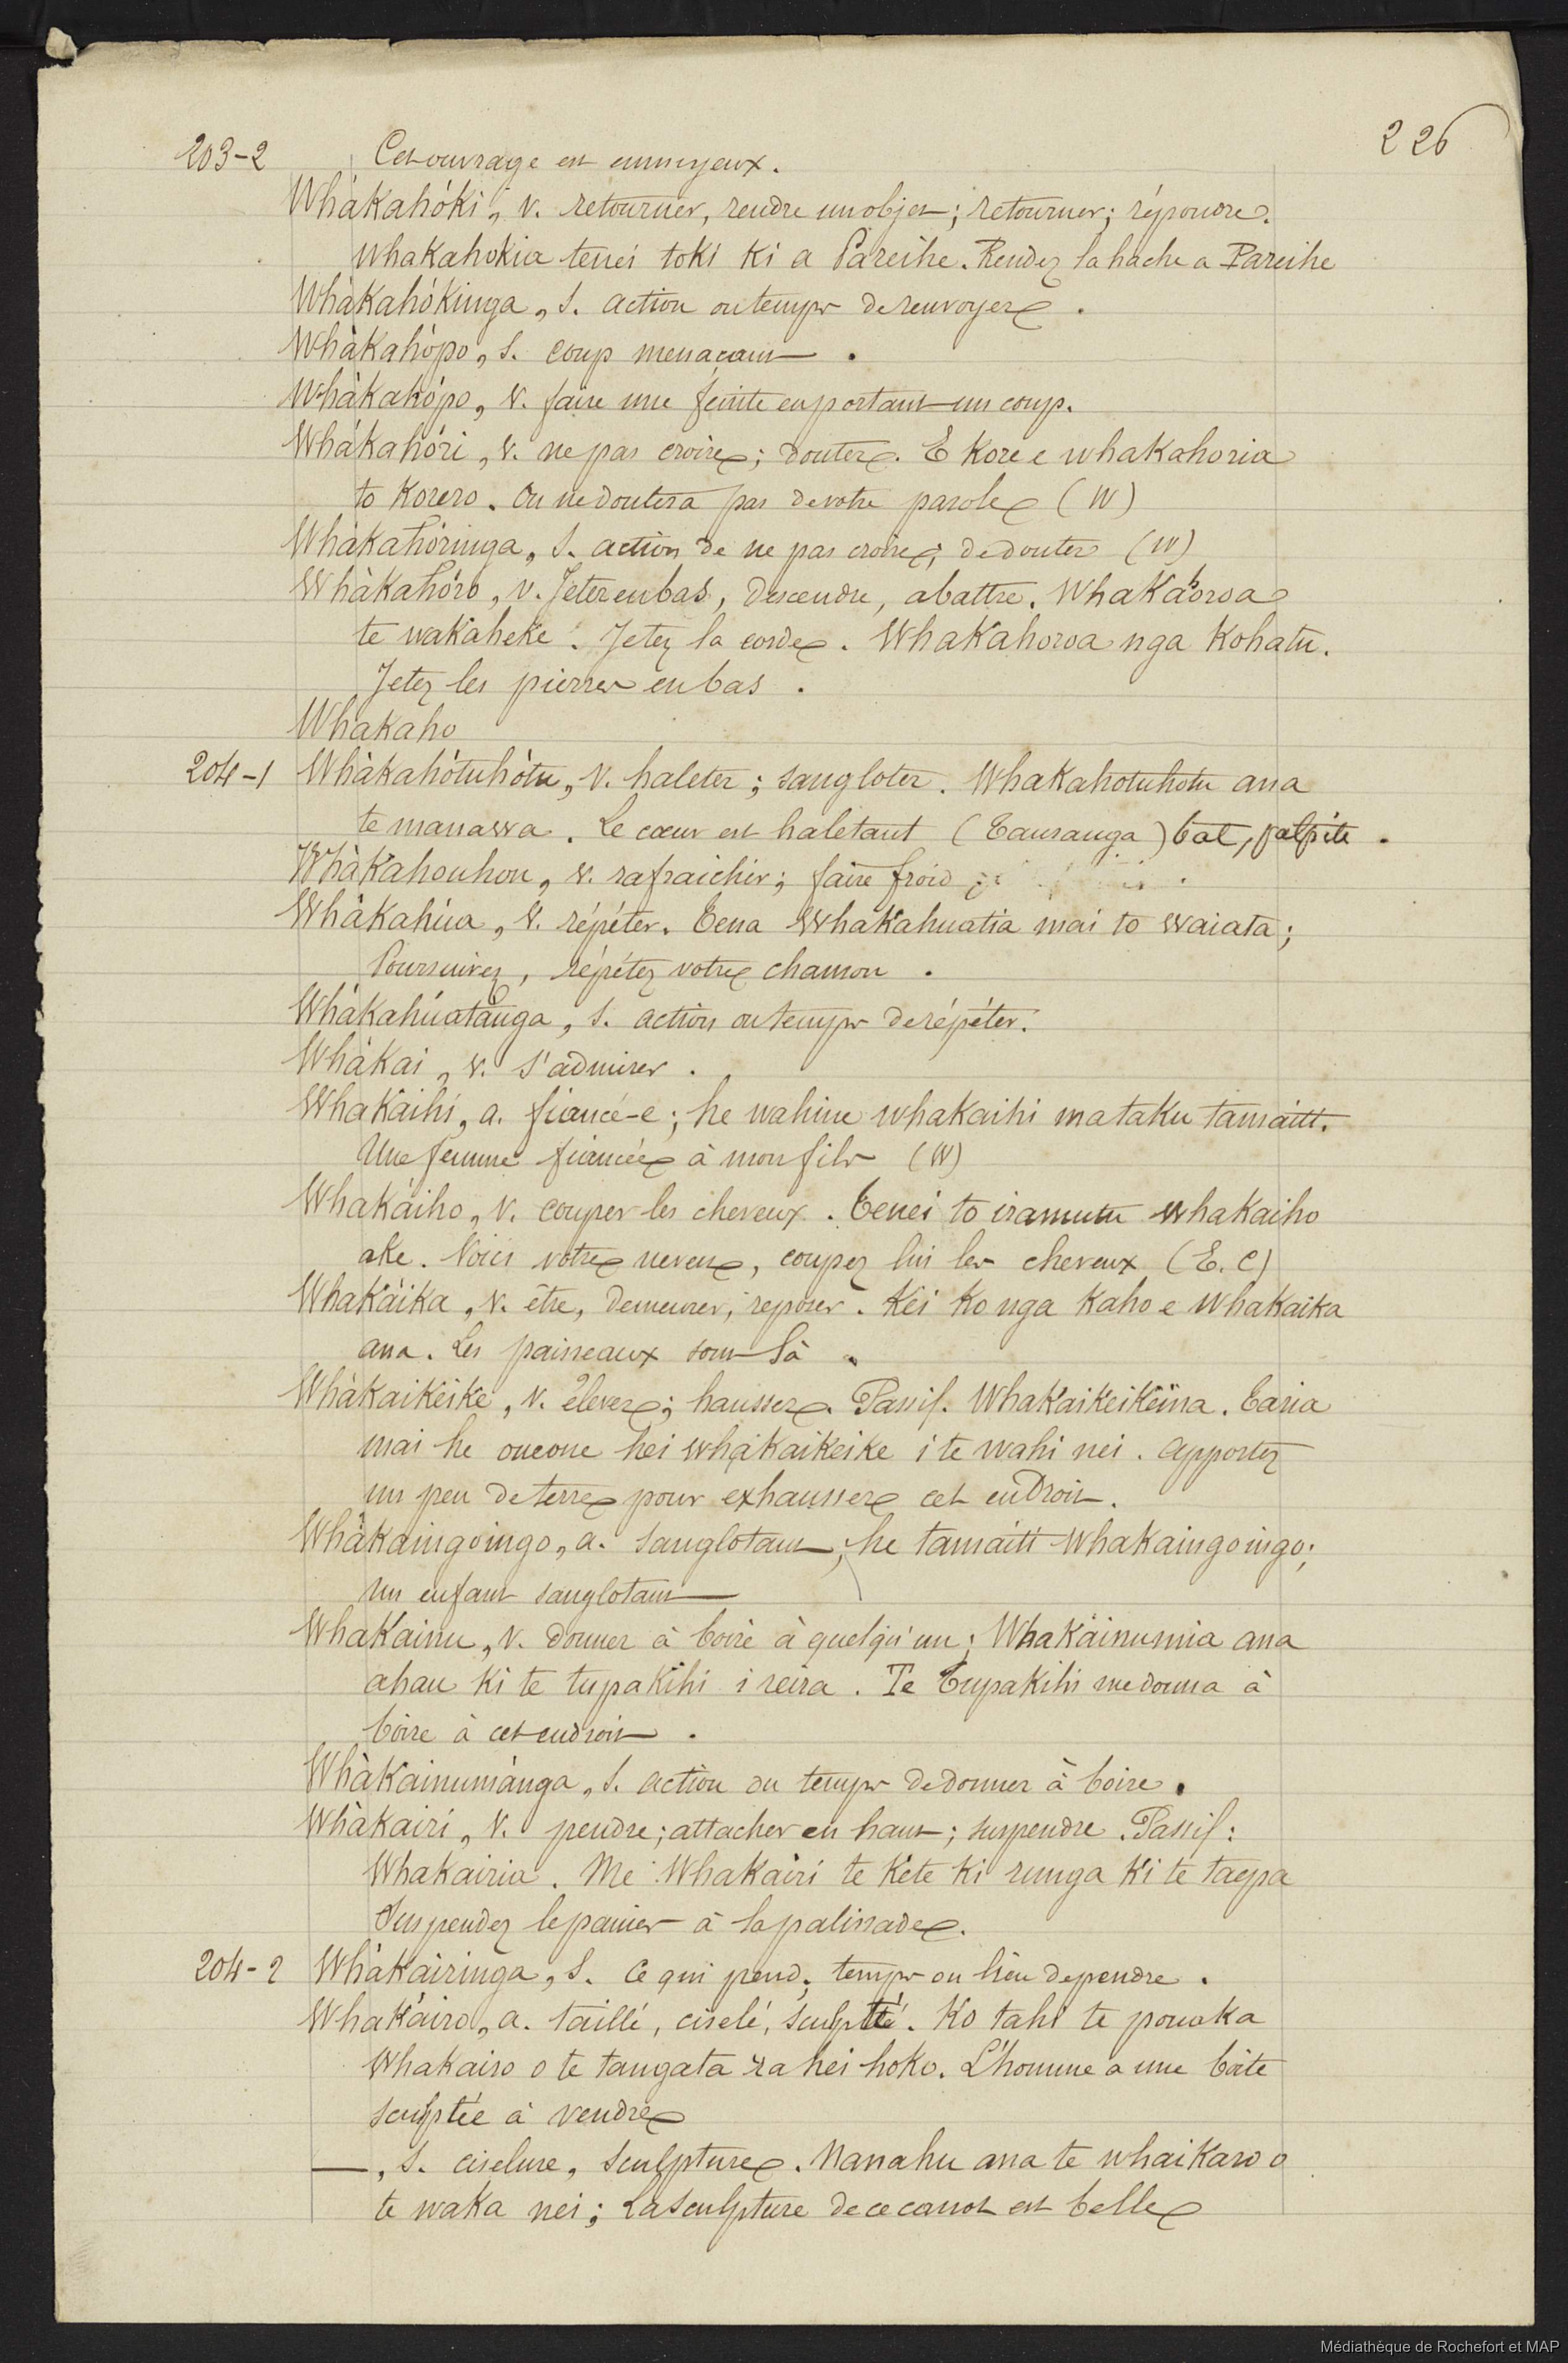 226
203-2 Cet ouvrage est ennuyeux.
Whàkahóki, v. retourner, rendre un objet; retourner; répondre.
whakahokia tenei toki ki a Pareihe. Rendez la hache a Pareihe
Whàkahókinga, s. action ou temps de renvoyer.
Whàkahópo, s. coup menaçant.
Whàkahópo, v. faire une feinte en portant un coup.
Whàkahóri, v. ne pas croire; douter. E kore e whakahoria
to korero. On ne doutera pas de votre parole (W)
Whàkahóringa, s. action de ne pas croire; de douter (W)
Whàkahóro, v. Jeter en bas, descendre, abattre. Whakahoroa
te wakaheke. Jetez la corde. Whakahoroa nga kohatu.
Jetez les pierres en bas.
Whakaho
204-1 Whàkahótuhótu, v. haleter; sangloter. Whakahotuhotu ana
te manawa. Le cœur est haletant (Tauranga) bat, palpite.
Whàkahouhou, v. rafraichir; faire froid
Whàkahúa, v. répéter. Tena Whakahuatia mai to waiata;
Poursuivez, répétez votre chanson.
Whàkahúatànga, s. action ou temps de répéter.
Whàkai, v. s'admirer.
Whakàihi, a. fiancé-e; he wahine whakaihi mataku tamàiti.
Une femme fiancée à mon fils (W)
Whakàiho, v. couper les cheveux. Tenei to iramutu whakaiho
ake. Voici votre neveu, coupez lui les cheveux (E.C)
Whakàika, v. être, demeurer, reposer. Kei ko nga kaho e whakaika
ana. Les paisseaux sont là.
Whàkaikéike, v. élever; hausser. Passif. Whakaikeikéïna. Taria
mai he oneone hei whakaikeike i te wahi nei. Apportez
un peu de terre pour exhausser cet endroit.
Whàkaingoingo, a. sanglotant; he tamàiti whakaingoingo;
un enfant sanglotant
Whakàinu, v. donner à boire à quelqu'un; Whakàinumia ana
ahau ki te tupakihi i reira. Te Tupakihi me donna à
boire à cet endroit.
Whàkainumànga, s. action ou temps de donner à boire.
Whàkairi, v. pendre; attacher en haut; suspendre. Passif:
Whakairia. Me Whakàiri te kete ki runga ki te taepa
Suspendez le panier à la palissade.
204-2 Whàkàiringa, s. Ce qui pend; temps ou lieu de pendre.
Whakàiro, a. taillé, ciselé, sculpté. Ko tahi te pouaka
Whakairo o te tangata ra hei hoko. L'homme a une boîte
sculptée à vendre
—, s. ciselure, sculpture. Nanahu ana te whaikaro o
te waka nei; La sculpture de ce canot est belle
Médiathèque de Rochefort et MAP